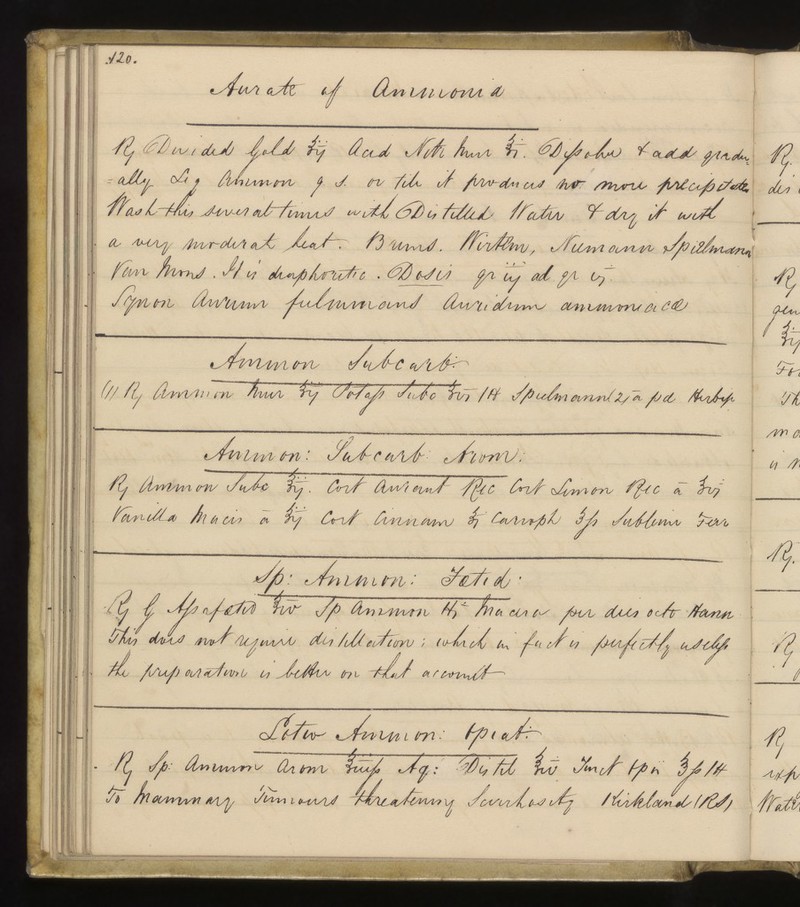 120.
Aurate of Ammonia
℞ Divided Gold ʒij Acid Nitr Mur ℥i. Dissolve & add gradu=
=ally Liq Ammon q s. or till it produces no more precipitate
Wash this several times with Distilled Water & dry it with
a very moderat heat. Bruns. Wirtem, Niemann Spielmann
Van Mons. It is diaphoretic. Dosis gr iij ad gr vj
Synon Aurum fulminans Auridum ammoniacæ
Ammon Subcarb:
(1) ℞ Ammon Mur ℥ij Potass Subc M Spielmann (2) a pd Herbip
Ammon: Subcarb: Arom:
℞ Ammon Subc ℥ij. Cort Aurant Rec Cort Limon Rec a ℥vj
Vanilla Macis a ʒij Cort Cinnam ʒj Carioph ʒß Sublime Ferr
Sp: Ammon: Fœtid:
℞ G Assafœtid ℥iv Sp Ammon Macera per dies octo Hann
This does not require distillation; which in fact is perfectly useless
the preparation is better on that account
Lotio Ammon: Opiat:
℞ Sp: Ammon Arom ℥iiiß Aq: Distil ℥iv Tinct Opii ʒß M
To Mammary Tumours threatening Scirrhosity Kirkland (RS)
℞.
℞
℞.
℞
℞